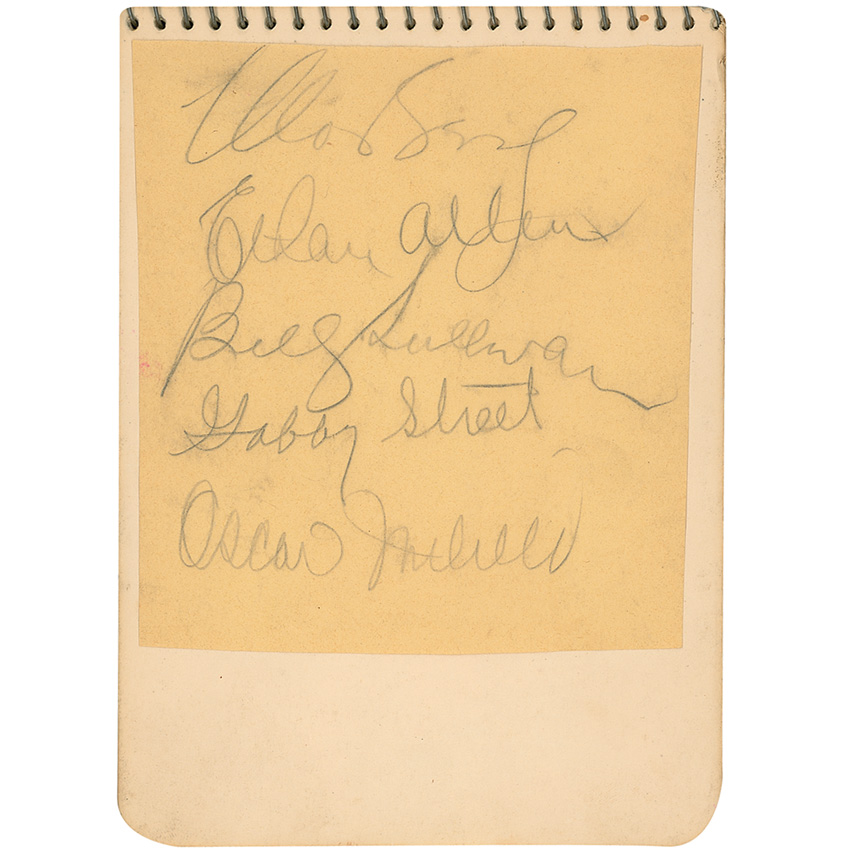 Ethan Allen
Billy Sullivan
Gabby Street
Oscar Melillo